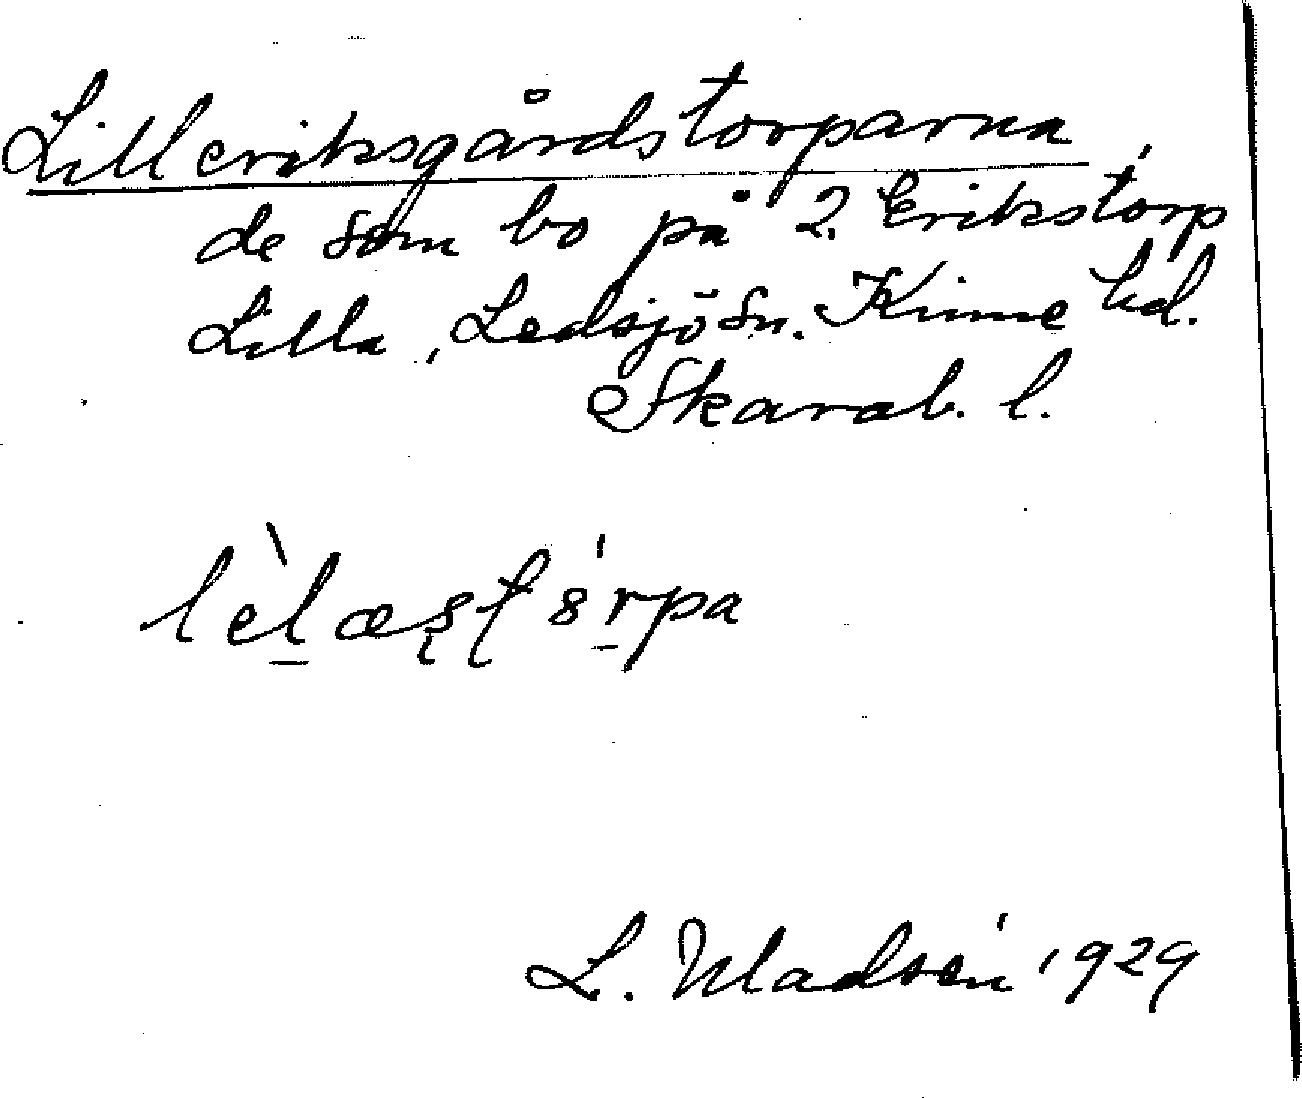 Lilleriksgårdstorparna
de som bo på 2. Erikstorp
Lilla, Ledsjö sn. Kinne hd.
Skarab. l.
L. Madsén 1929